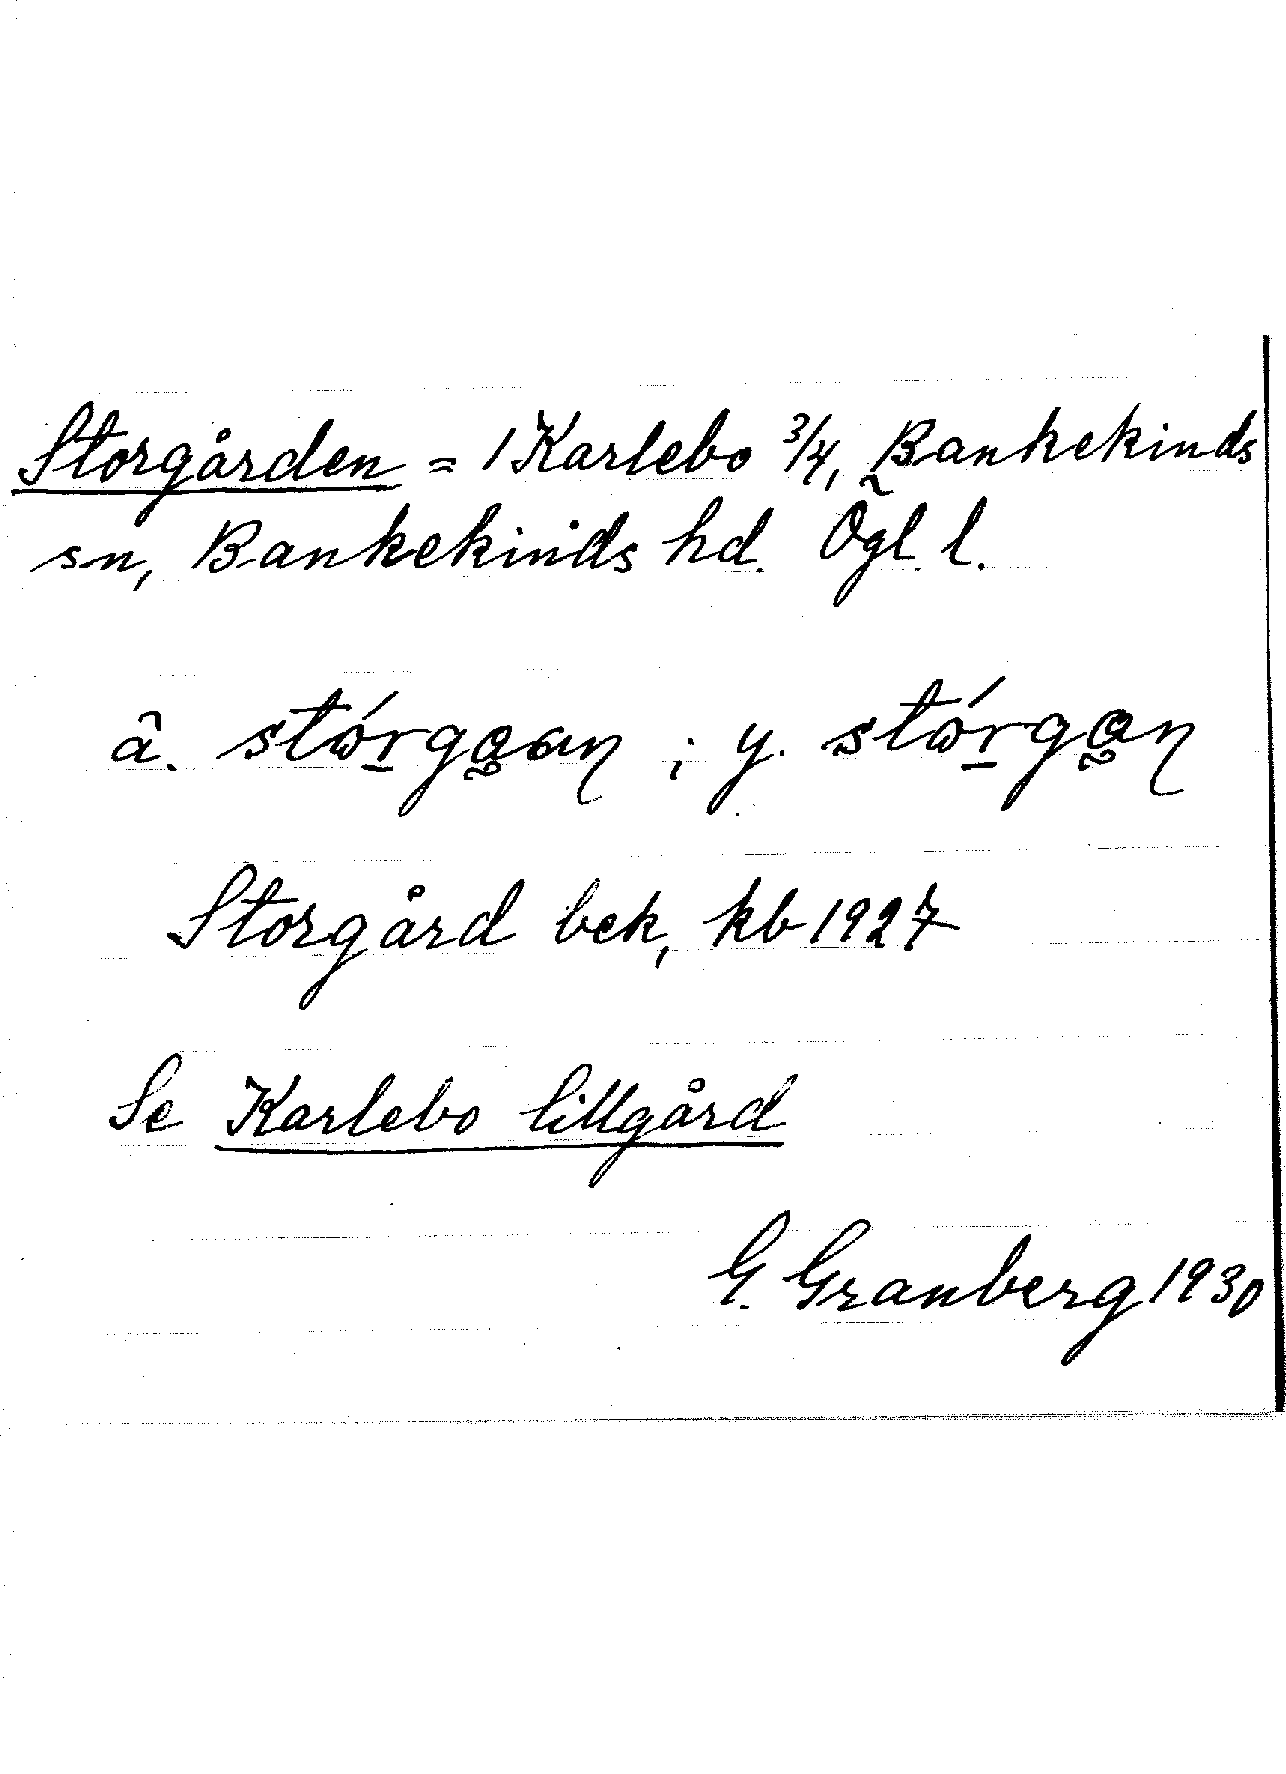 Storgården = 1 Karlebo 3/4, Bankekinds
sn, Bankekinds hd. Ögl. l.
â. stórgɑan ; y. stórgɑn
Storgård bek, kb 1927
Se Karlebo lillgård
G. Granberg 1930